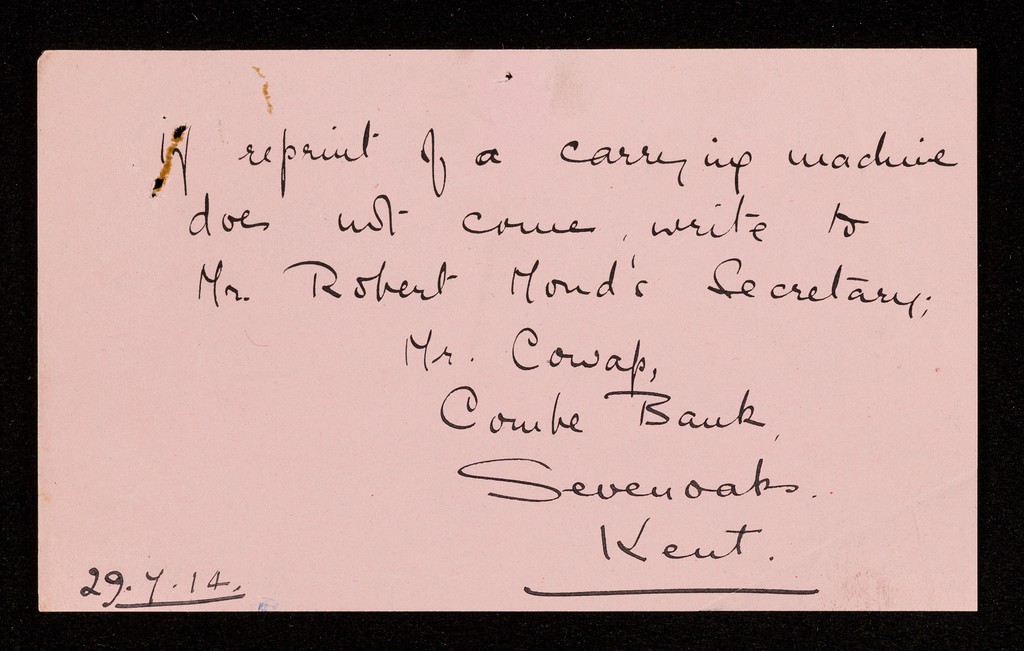 If reprint of a carrying machine
does not come, write to
Mr. Robert Mond's Secretary;
Mr. Cowap,
Combe Bank,
Sevenoaks.
Kent.
29.7.14.